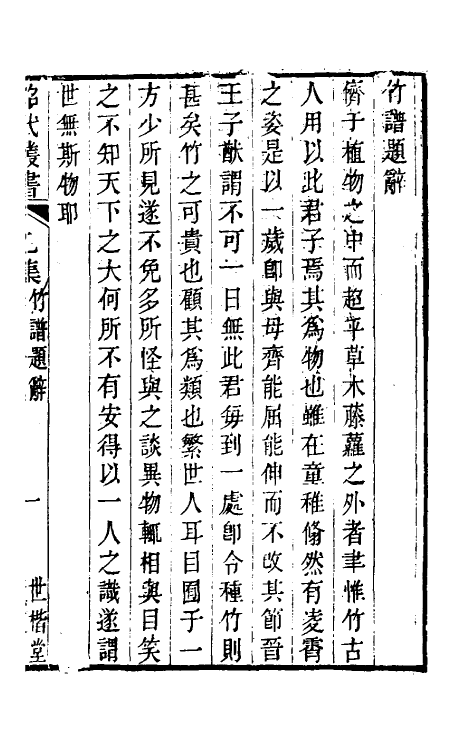 竹譜題辭
儕于植物之中而超乎草木藤蘿之外者聿惟竹古
人用以此君子焉其爲物也雖在童稚翛然有凌霄
之姿是以一歲卽與母齊能屈能伸而不改其節晉
王子猷謂不可一日無此君每到一處卽令種竹則
甚矣竹之可貴也顧其爲類也繁世人耳目囿于一
方少所見遂不免多所怪與之談異物輒相與目笑
之不知天下之大何所不有安得以一人之識遂謂
世無斯物耶
昭代叢書 乙集竹譜題辭 一 世楷堂